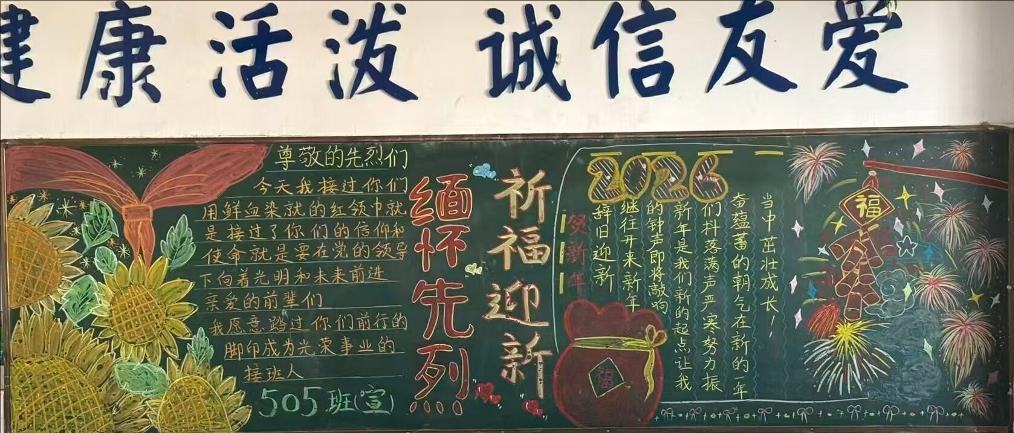 健康活泼 诚信友爱
尊敬的先烈们
今天我接过你们
用鲜血染就的红领巾就
是接过了你们的信仰和
使命就是要在党的领导
下向着光明和未来前进
亲爱的前辈们
我愿意踏过你们前行的
脚印成为光荣事业的
接班人
505班(宣)
缅怀先烈
祈福迎新
2026
贺新年
辞旧迎新
继往开来新年
的钟声即将敲响
新年是我们新的起点让我
们抖落满声严寒努力振
奋蕴蓄的朝气在新的一年
当中茁壮成长!
福
福